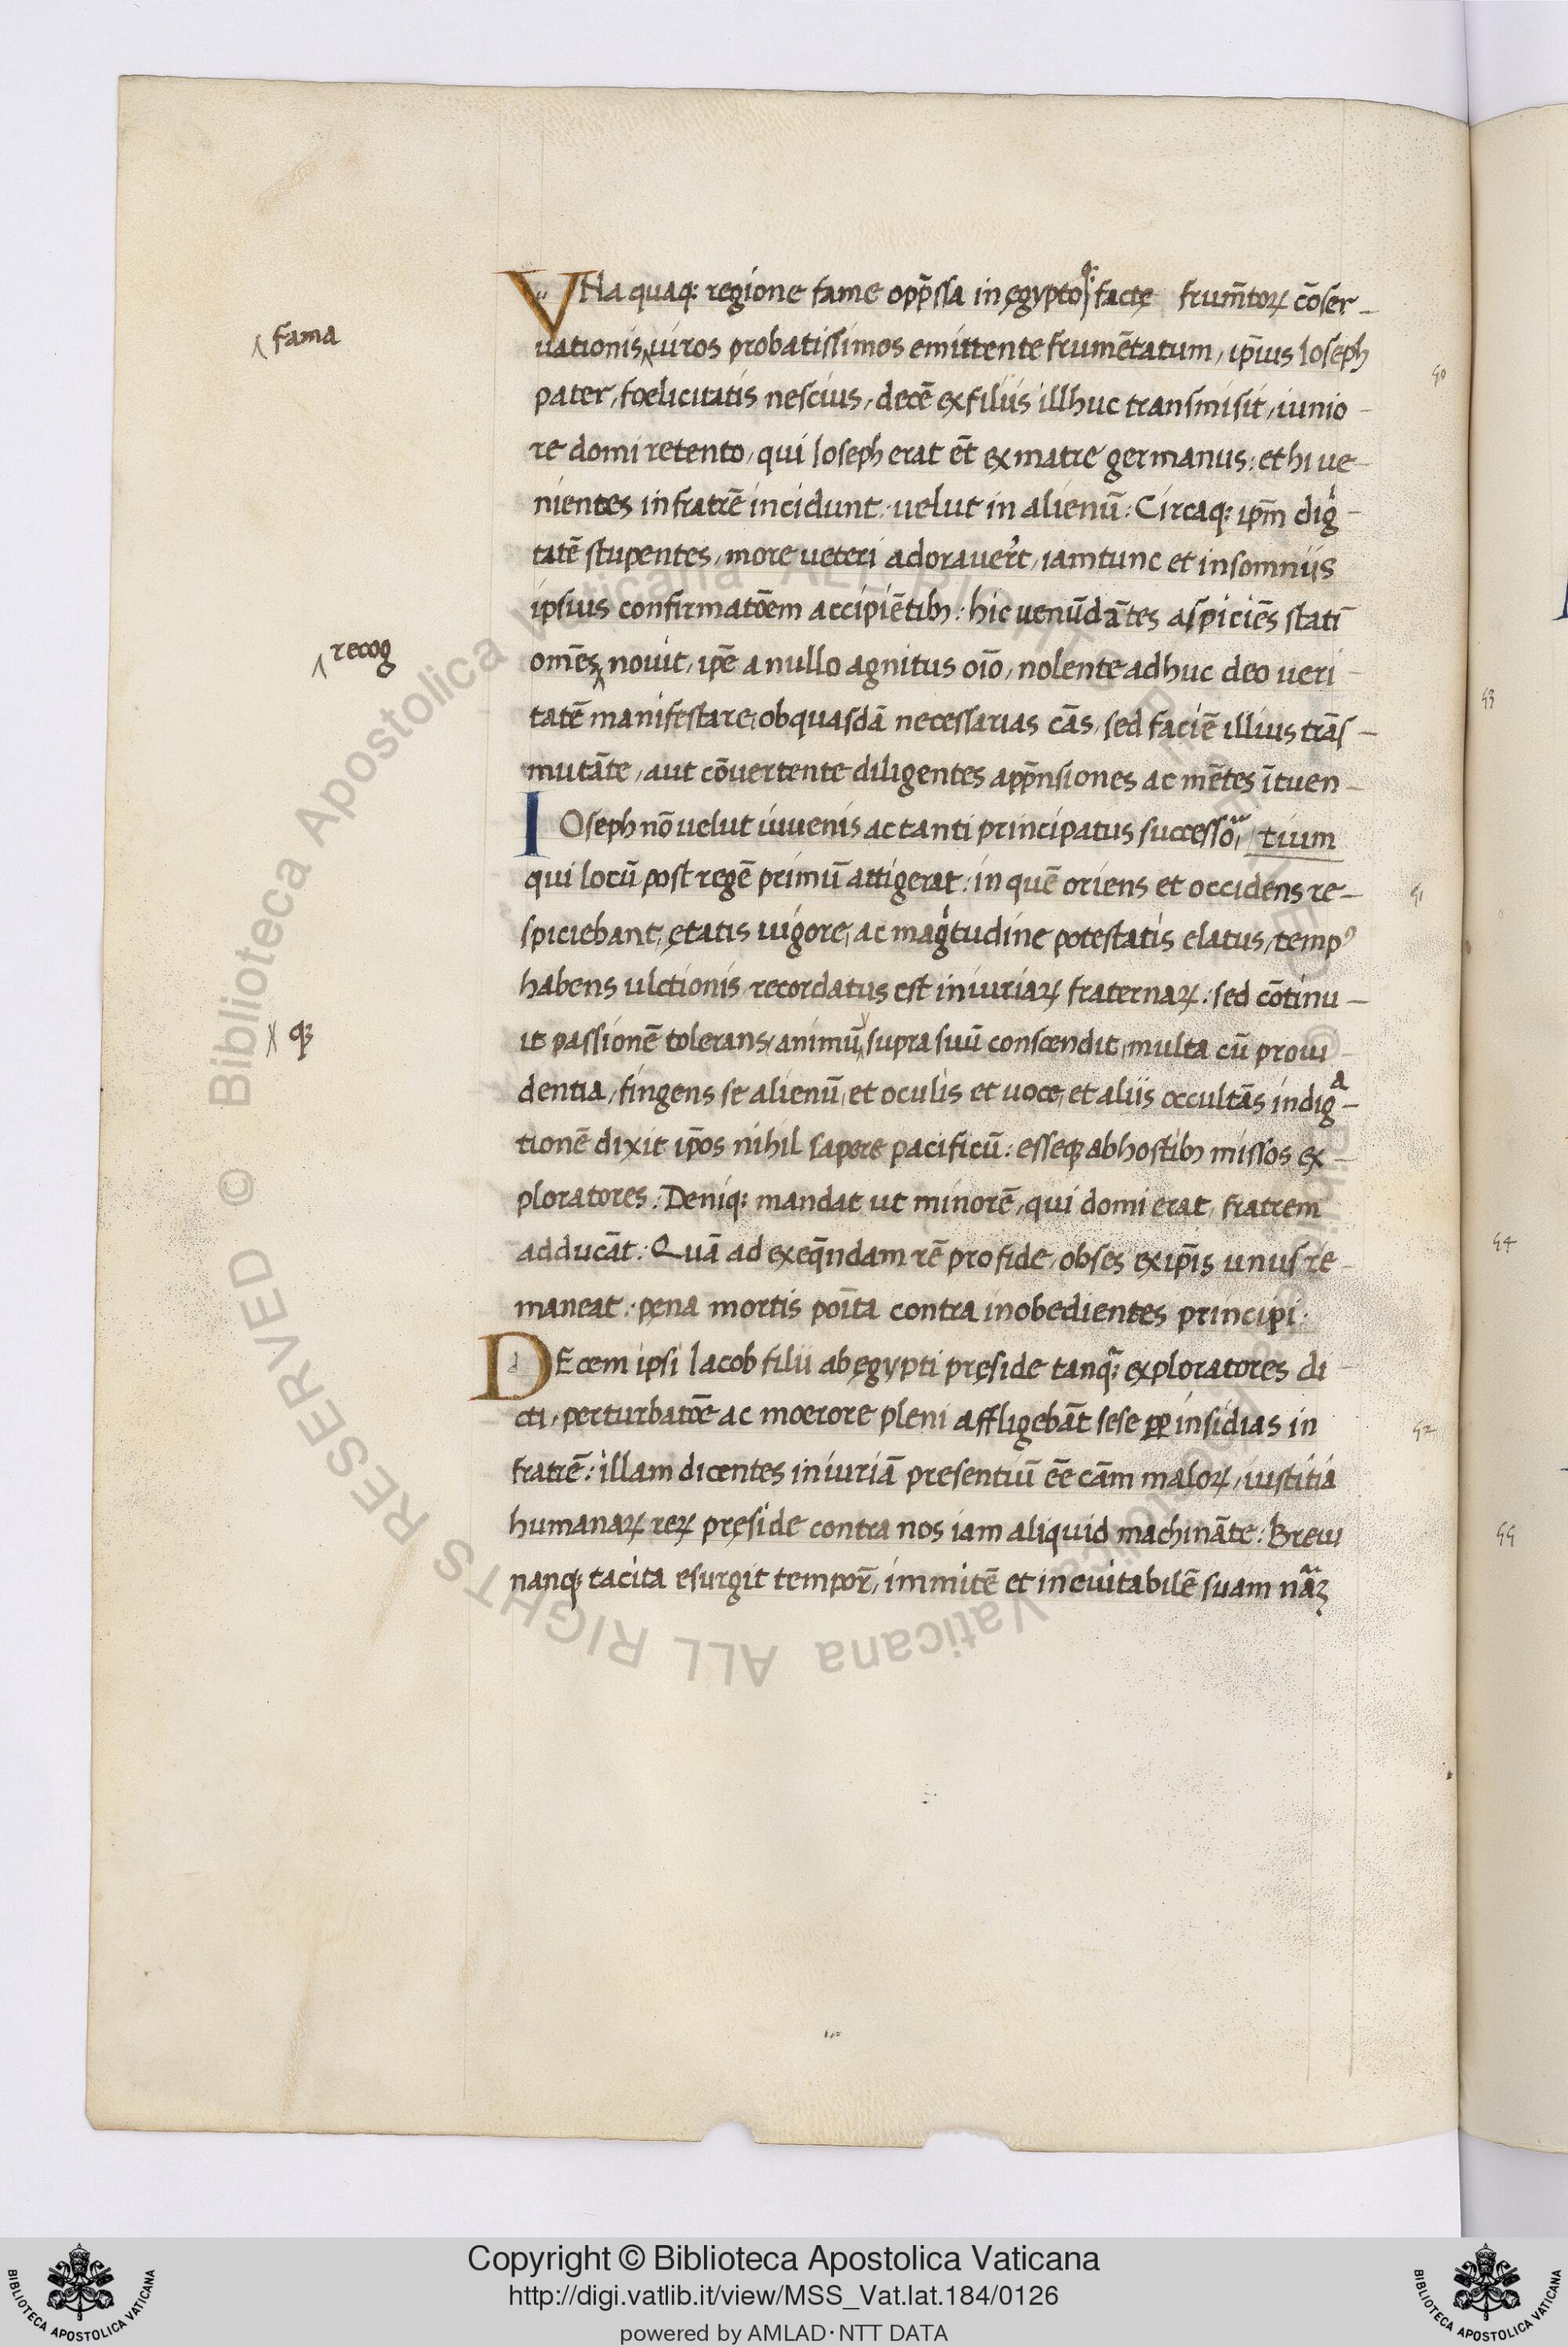 VNa quaq: regione fame opp̄ssa in ęgypto q: factę frum̄torꝝ cōser-
fama
uationis uiros probatissimos emittente frumētatum, ip̄ius Ioseph
50
pater, foelicitatis nescius, decē ex filiis illhuc transmisit, iunio-
re domi retento, qui Ioseph erat ēt ex matre germanus: et hi ue-
nientes in fratrē incidunt: uelut in alienū: Circaq: ip̄m digi-
tatē stupentes, more ueteri adorauer̄t, iamtunc et insomniis
ipsius confirmatōem accipiētib⁊: hic uenūdātes aspiciēs statī
recog
om̄es nouit, ip̄e a nullo agnitus oīo, nolente adhuc deo ueri-
53
tatē manifestare, ob quasdā necessarias cās, sed faciē illius trās-
mutāte, aut cōuertente diligentes app̄nsiones ac mētes ītuen-
IOseph nō uelut iuuenis ac tanti principatus successor, tium
qui locū post regē primū attigerat: in quē oriens et occidens re-
51
spiciebant, ętatis uigore, ac magitudine potestatis elatus, temp⁹
habens ulctionis recordatus est iniuriarꝝ fraternarꝝ: sed cōtinu-
qꝫ
it passionē tolerans, animū supra suū conscendit, multa cū proui-
dentia, fingens se alienū, et oculis et uoce, et aliis occultās indigᵃ-
tionē dixit ip̄os nihil sapere pacificū: esseqꝫ ab hostib⁊ missos ex-
ploratores: Deniq: mandat ut minorē, qui domi erat, fratrem
adducāt: Quā ad exeq̄ndam rē pro fide, obses ex ip̄is unus re-
54
maneat: pęna mortis poīta contra inobedientes principi:
DEcem ipsi Iacob filii ab ęgypti pręside tanq̄: exploratores di-
cti, perturbatōe ac moerore pleni affligebāt sese ꝓp insidias in
52
fratrē: illam dicentes iniuriā presentiū ēē cām malorꝝ, iustitia
humanarꝝ rerꝝ pręside contra nos iam aliquid machināte: Breui
55
nanqꝫ tacita esurgit tempor̄, immitē et ineuitabilē suam nāꝫ
Copyright © Biblioteca Apostolica Vaticana
http://digi.vatlib.it/view/MSS_Vat.lat.184/0126
powered by AMLAD·NTT DATA
BIBLIOTECA APOSTOLICA VATICANA
BIBLIOTECA APOSTOLICA VATICANA
© Biblioteca Apostolica Vaticana ALL RIGHTS RESERVED